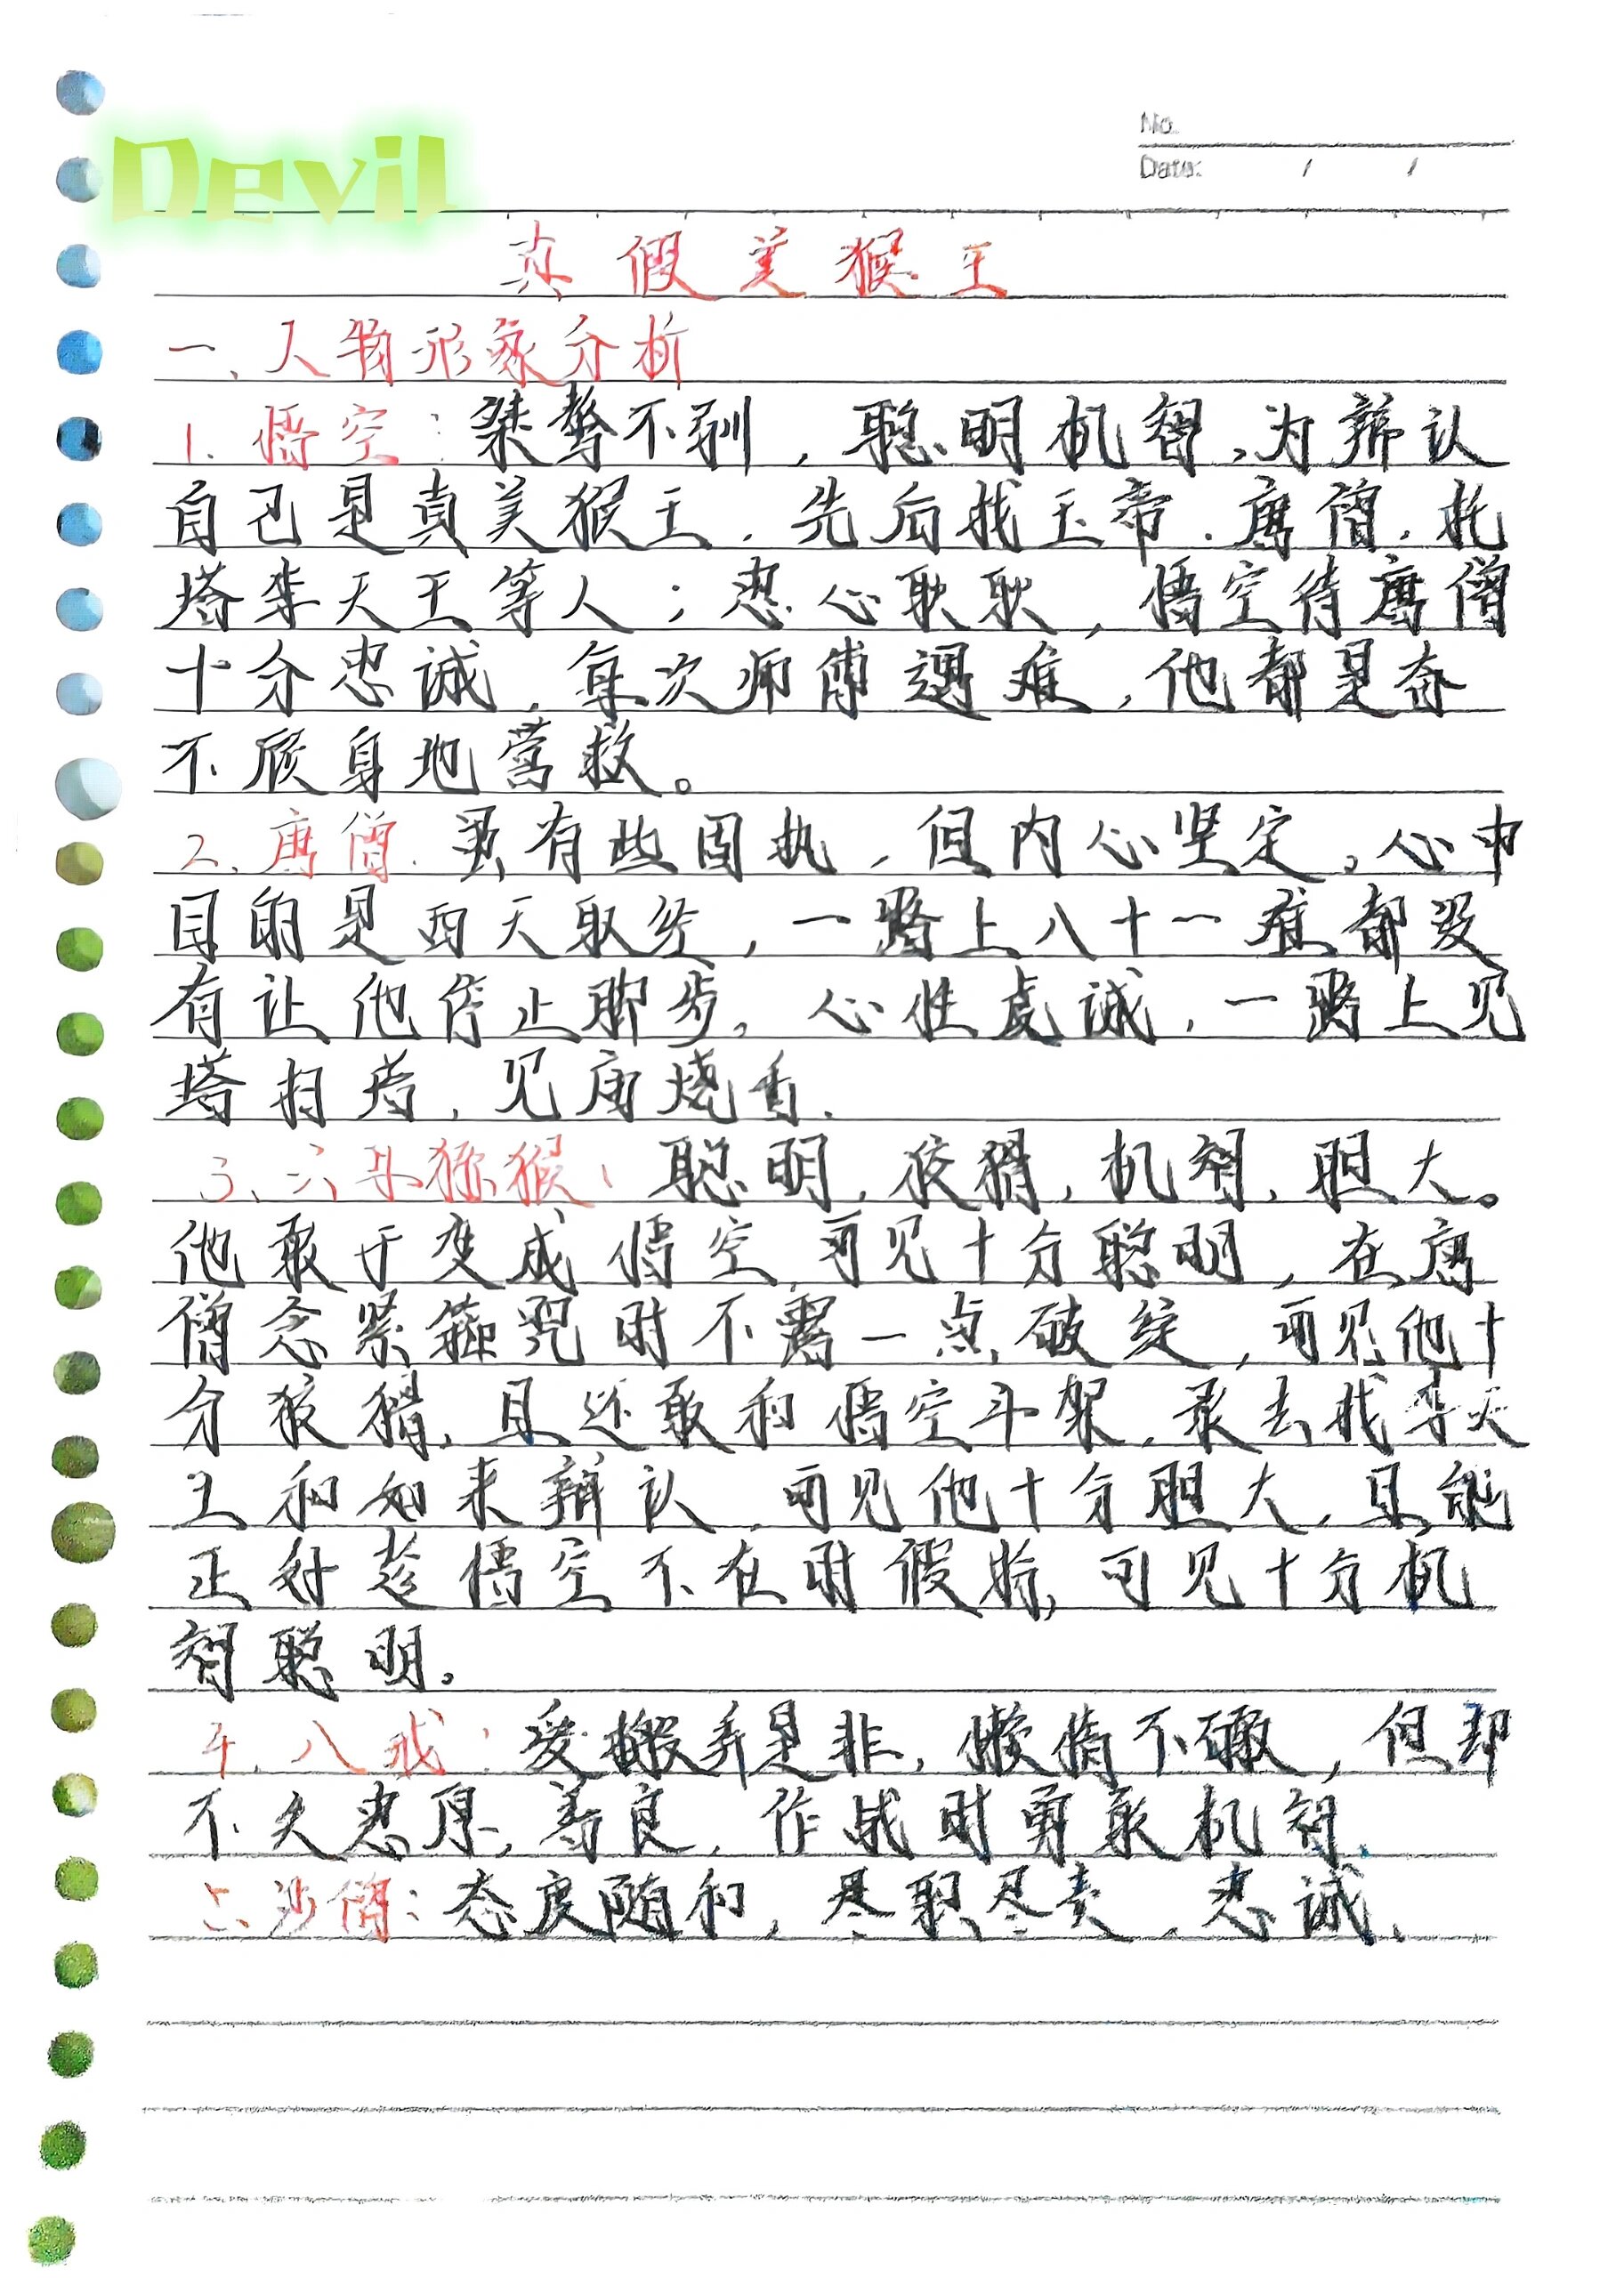 Devil
No.
Date: / /
真假美猴王
一、人物形象分析
1.悟空:桀骜不驯,聪明机智,为辨认
自己是真美猴王,先后找玉帝.唐僧.托
塔李天王等人;忠心耿耿,悟空待唐僧
十分忠诚,每次师傅遇难,他都是奋
不顾身地营救。
2.唐僧.虽有些固执,但内心坚定。心中
目的是西天取经,一路上八十一难都没
有让他停止脚步。心性虔诚,一路上见
塔扫塔,见庙烧香.
3、六耳猕猴:聪明,狡猾,机智,胆大。
他敢于变成悟空,可见十分聪明,在唐
僧念紧箍咒时不露一点破绽,可见他十
分狡猾,且还敢和悟空斗架,敢去找李天
王和如来辨认,可见他十分胆大,且能
正好趁悟空不在时假扮,可见十分机
智聪明。
4.八戒:爱搬弄是非,懒惰不敢,但却
不失忠厚,善良,作战时勇敢机智.
5.沙僧:态度随和,尽职尽责,忠诚.